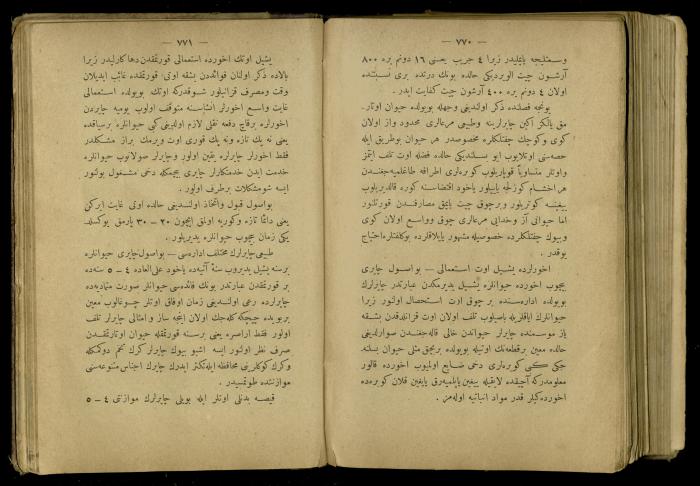 — ٧٧٠ —
وسنلیجه یاپیلیدر زیرا ٤ جریب یعنی ١٦ دونم یره ٨٠٠
آرشون چیت الویردیكی حالده بونك درتده بری نسبتنده
اولان ٤ دونم یره ٤٠٠ آرشون چیت كفایت ایدر .
یونجه فصلنده ذكر اولندیغی وجهله بویولده حیوان اوتار .
مق یالكز اكین چایرلرینه وطبیعی مرعالری محدود واز اولان
كوی وكوچك چفتلكلره مخصوصدر هر حیوان بوطریق ایله
حصه‌سنی اوتلایوب ایو بسلندیكی حالده فضله اوت تلف ایتمز
واوتلر متساویاً قوپاریلوب كوبره‌لری اطرافه طاغلمیه‌جغندن
هر اخشام كوزلجه یاییلور یاخود اقتضاسنه كوره قالدیریلوب
ییغینه كوتریلور وبرچوق چیت یاپمق مصارفندن قورتلنور
اما حیوانی آز وخدایی مرعالری چوق وواسع اولان كوی
وبیوك چفتلكلرده خصوصیله مشهور یایلاقلرده بوكلفتلره احتیاج
یوقدر .
اخورلرده یشیل اوت استعمالی — بواصول چایری
بیچوب اخورده حیوانلره یشیل یدیرمكدن عبارتدر چایرلرك
بویولده اداره‌سنده بر چوق اوت استحصال اولنور زیرا
حیوانلرك ایاقلریله باصیلوب تلف اولان اوت قزانلدقدن بشقه
یاز موسمنده چایرلر حیواندن خالی قاله‌جغندن صوارلدیغی
حالده معین برقطعه‌نك اوتیله بویولده برنجق مثلی حیوان بسلنه
جكی كبی كوبره‌لری دخی ضایع اولمیوب اخورده قالور
معلومدركه آچیقده لایقیله ییغین یاپلمیه‌رق یایغین قلان كوبره‌ده
اخورده‌كیلر قدر مواد انباتیه اوله‌مز .
— ٧٧١ —
یشیل اوتك اخورده استعمالی قورتمقدن دها كارلیدر زیرا
بالاده ذكر اولنان فوائددن بشقه اوتی قورتمقده غائب ایدیلان
وقت ومصرف قزانیلور شوقدركه اوتك بویولده استعمالی
غایت واسع اخورلر انشاسنه متوقف اولوب یومیه چایردن
اخورلره برقاچ دفعه نقلی لازم اولدیغی كبی حیوانلره برسیاقده
یعنی نه پك تازه ونه پك قوری اوت ویرمك براز مشكلدر
فقط اخورلر چایرلره یقین اولور وچایرلر صولانوب حیوانلره
خدمت ایدن خدمتكارلر چایری بیچمكله دخی مشغول بولنور
ایسه شومشكلات برطرف اولور .
بواصول قبول واتخاذ اولندیغی حالده اوتی غایت ایركن
یعنی دائما تازه وكوربه اولمق ایچون ٢٠ – ٣٠ پارمق یوكسلد
یكی زمان بیچوب حیوانلره یدیریلور .
طبیعی چایرلرك مختلف اداره‌سی — بواصول چایری حیوانلره
برسنه یشیل یدیروب سنهٔ آتیه‌ده یاخود علی العاده ٤ – ٥ سنه‌ده
بر قورتمقدن عبارتدر بونك فائده‌سی حیوانلر صورت متمادیه‌ده
چایرلرده رعی اولندیغی زمان اوفاق اوتلر چوغالوب معین
بربویده چیچكه كله‌جك اولان اینجه ساز وامثالی چایرلر تلف
اولور فقط اراصره یعنی برسنه قورتمقله حیوان اوتارتمقدن
صرف نظر اولنور ایسه اشبو بیوك چایرلر كرك تخم دوكمكله
وكرك كوكلرینی محافظه ایله تكثر ایدرك چایرك اجناس متنوعه‌سی
موازنتده طوتمسیدر .
قیصه بدنلی اوتلر ایله بویلی چایرلرك موازنتی ٤ – ٥